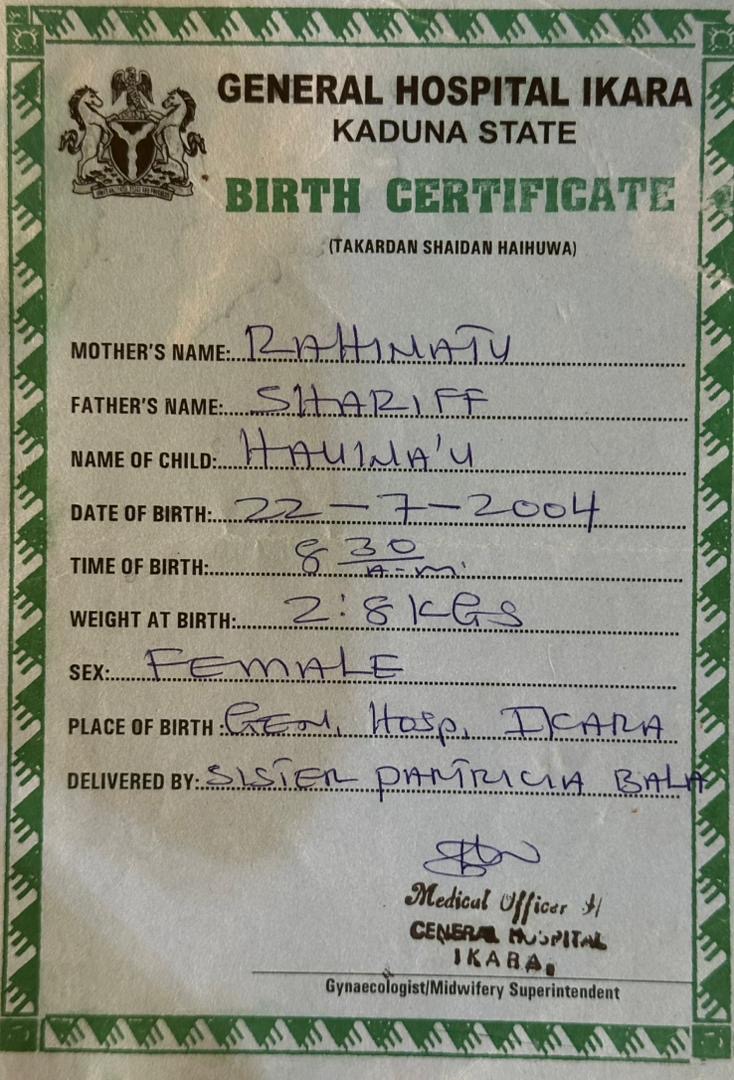 GENERAL HOSPITAL IKARA
KADUNA STATE
BIRTH CERTIFICATE
(TAKARDAN SHAIDAN HAIHUWA)
MOTHER'S NAME: RAHINATU
FATHER'S NAME: SHARIFF
NAME OF CHILD: HAUWA'U
DATE OF BIRTH: 22-7-2004
TIME OF BIRTH: 8 30 A-m.
WEIGHT AT BIRTH: 2.8KGS
SEX: FEMALE
PLACE OF BIRTH: GEN. Hosp. IKARA
DELIVERED BY: SISTER PAMTRICIA BALA
Medical Officer
GENERAL HOSPITAL
IKARA.
Gynaecologist/Midwifery Superintendent